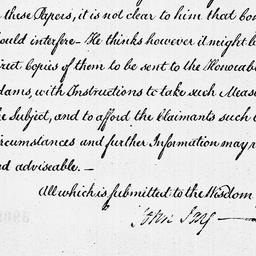 these Papers, it is not clear to him that
ould interfere - He thinks however it might be
irect Copies of them to be sent to the Honorab
dams, with Instructions to take such Meas
he Subject, and to afford the Claimants such
ircumstances and further Information may r
nd adviseable. -
All which is submitted to the Wisdom
John Jay